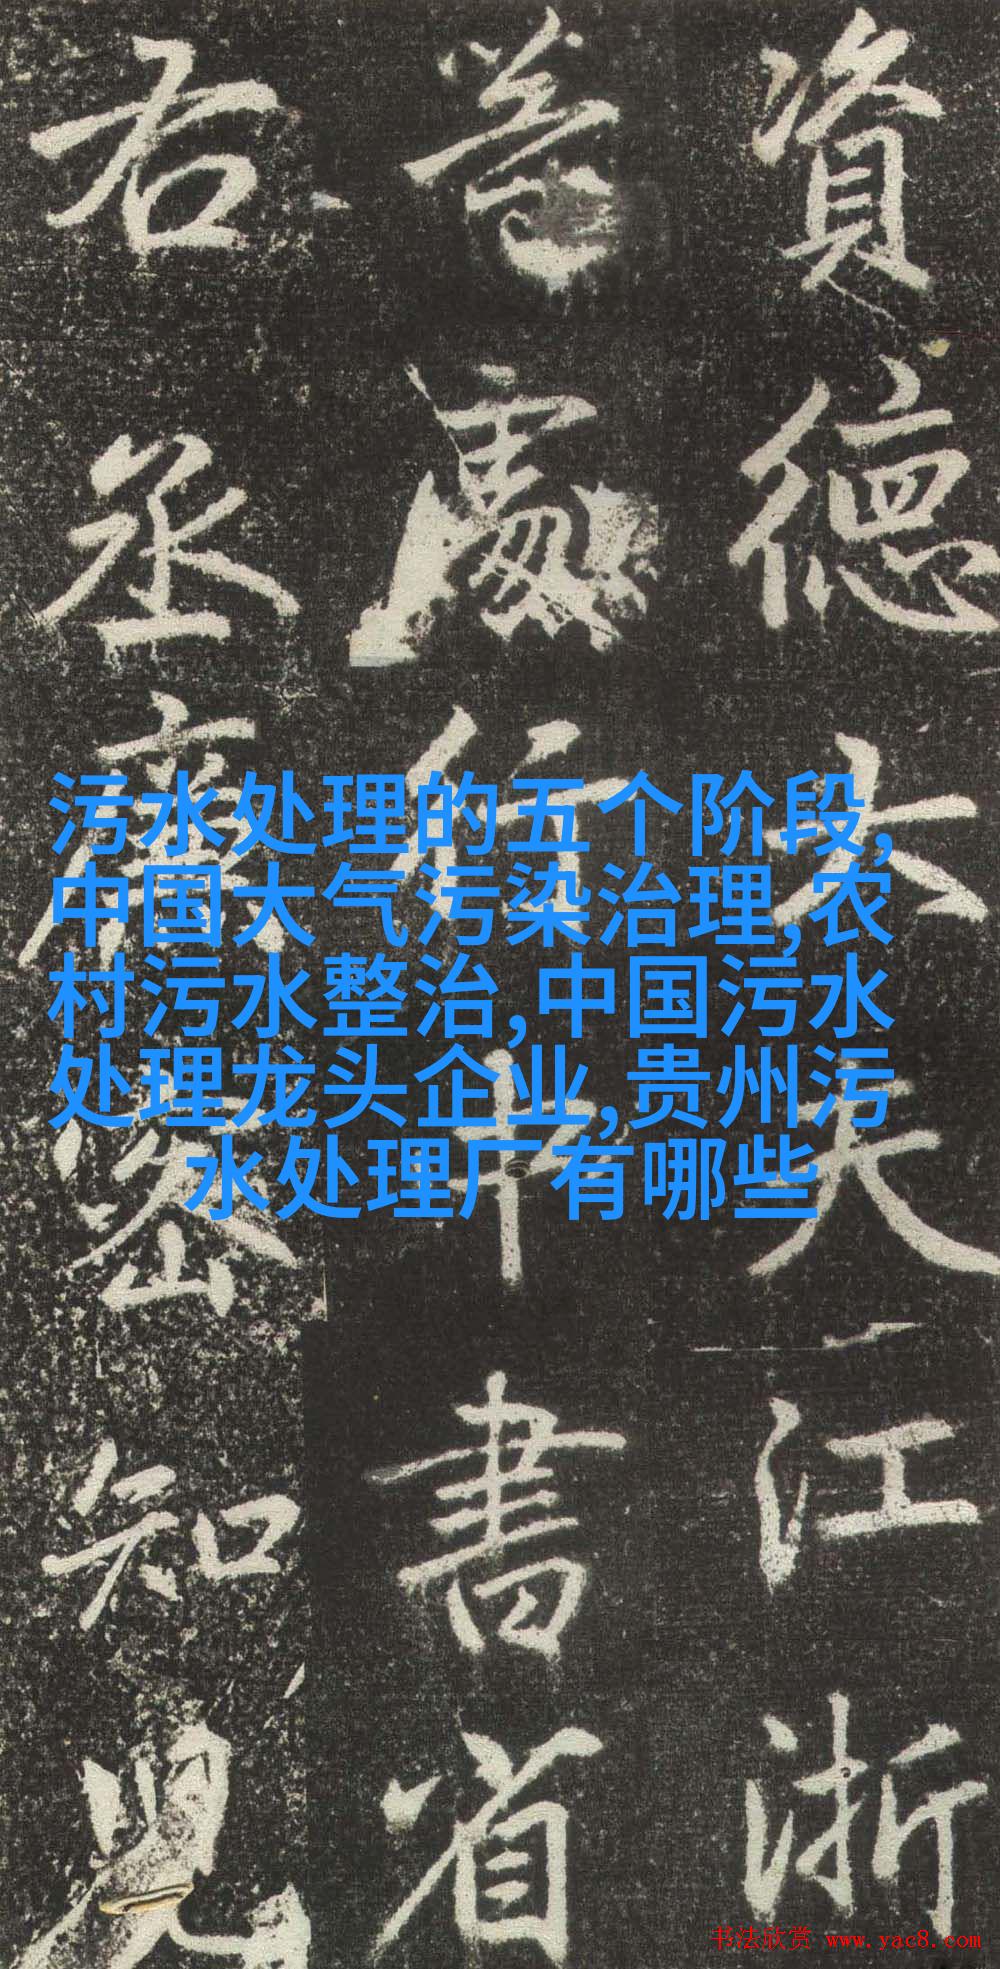 資德大夫江浙
等處行中書省
右丞廉密知兒
污水处理的五个阶段,
中国大气污染治理,农
村污水整治,中国污水
处理龙头企业,贵州污
水处理厂有哪些
书法欣赏 www.yac8.com